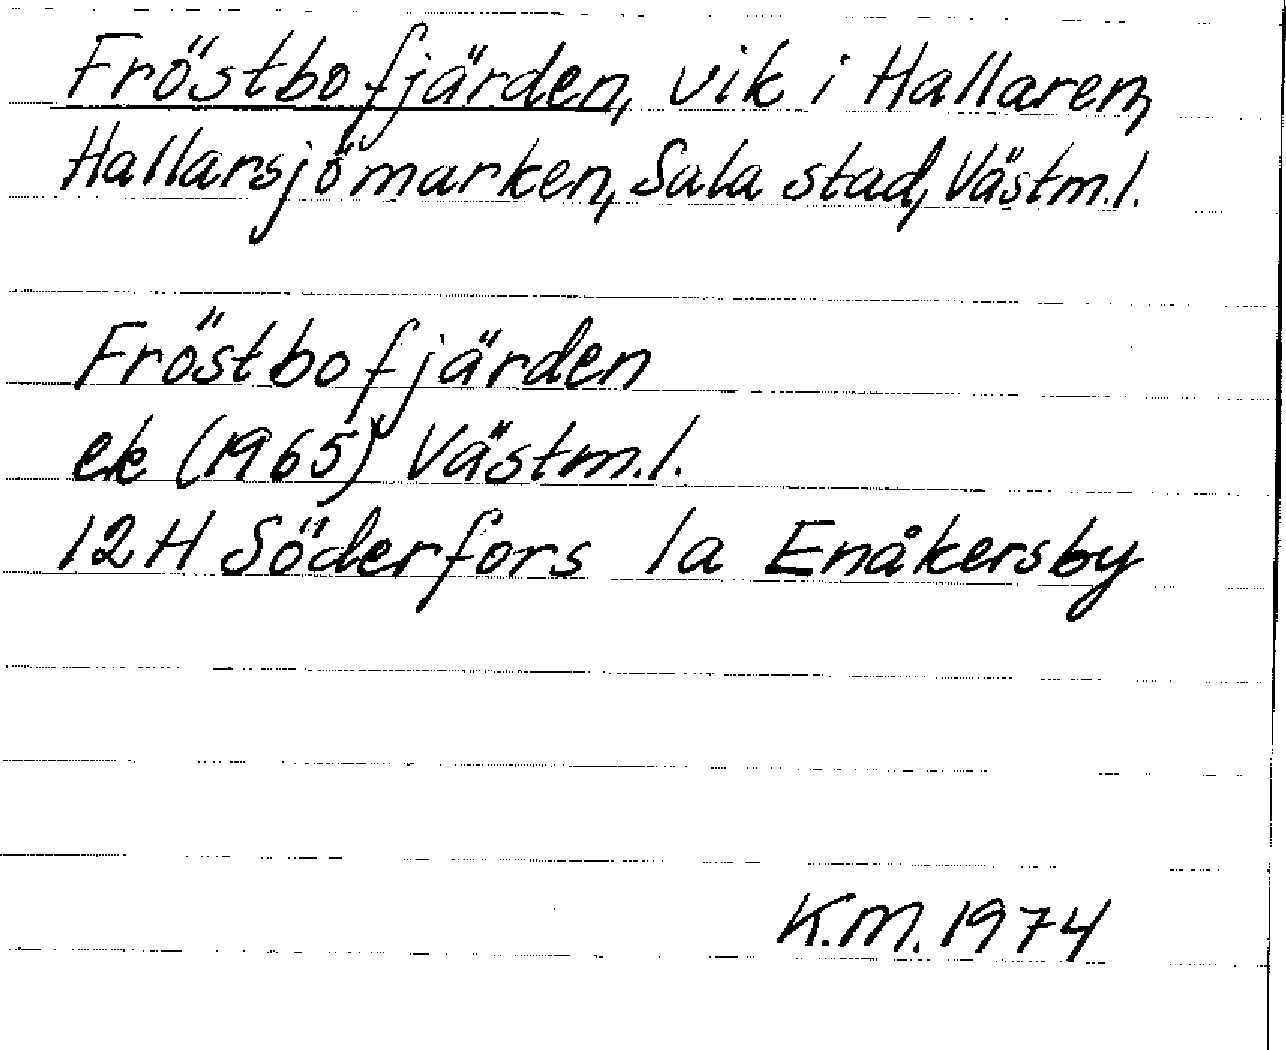 Fröstbofjärden, vik i Hallaren,
Hallarsjömarken, Sala stad, Västm.l.
Fröstbofjärden
ek (1965) Västm.l.
12H Söderfors 1a Enåkersby
K.M. 1974